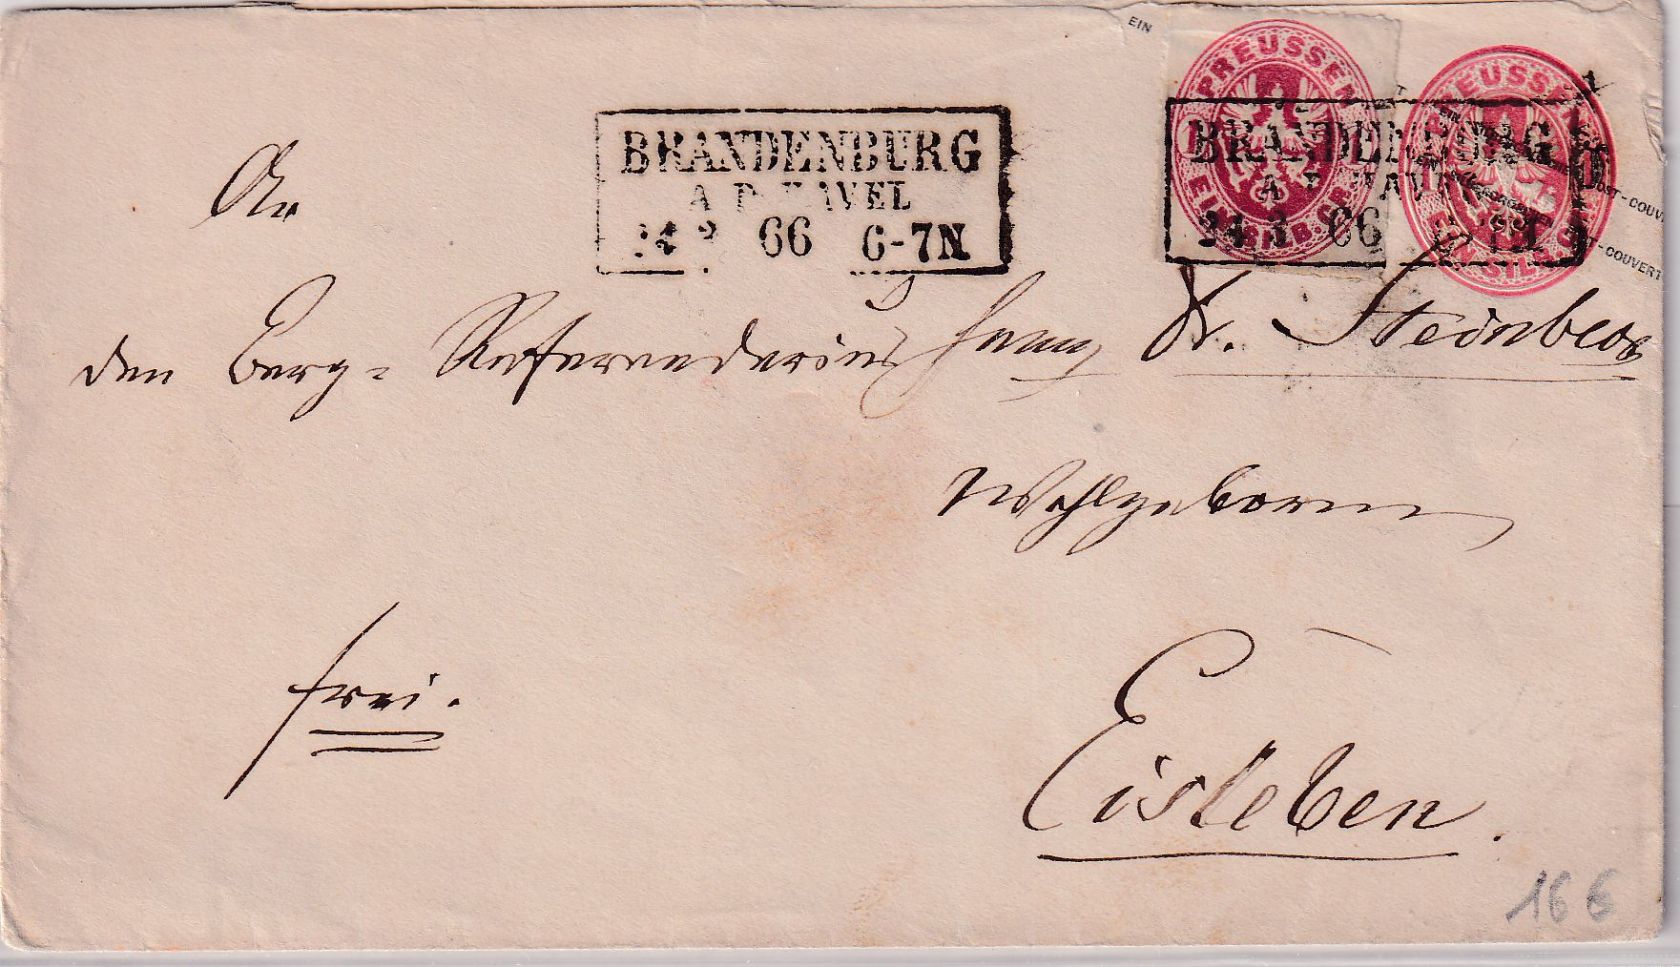 EIN
PREUSSEN
EIN SILB. GR.
PREUSSEN
EIN SILB. GR.
POST-COUVERT
POST-COUVERT
BRANDENBURG
A. D. HAVEL
24 3 66 6-7N
BRANDENBURG
A. D. HAVEL
24 3 66
An
den Berg-Referendarius Herrn Dr. Steinbeck
Wohlgeboren
frei.
Eisleben.
166